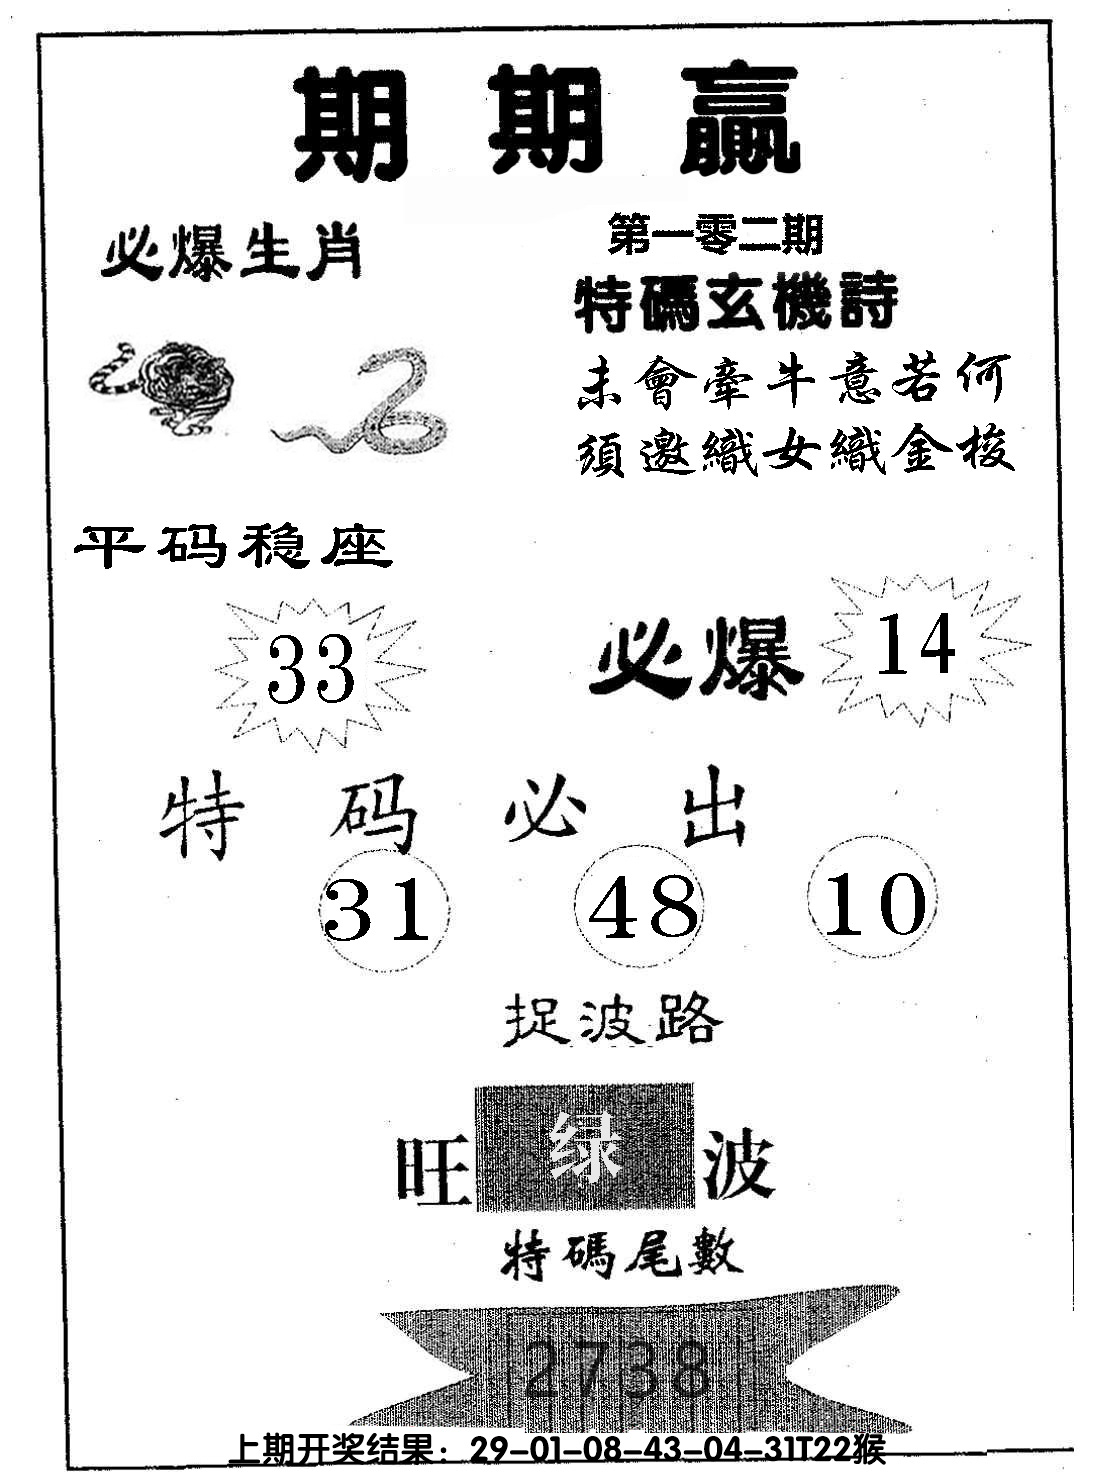 期期赢
必爆生肖
第一零二期
特碼玄機詩
未會牽牛意若何
須邀織女織金梭
平码稳座
33
必爆 14
特码必出
31 48 10
捉波路
旺 绿 波
特碼尾數
2738
上期开奖结果：29-01-08-43-04-31T22猴